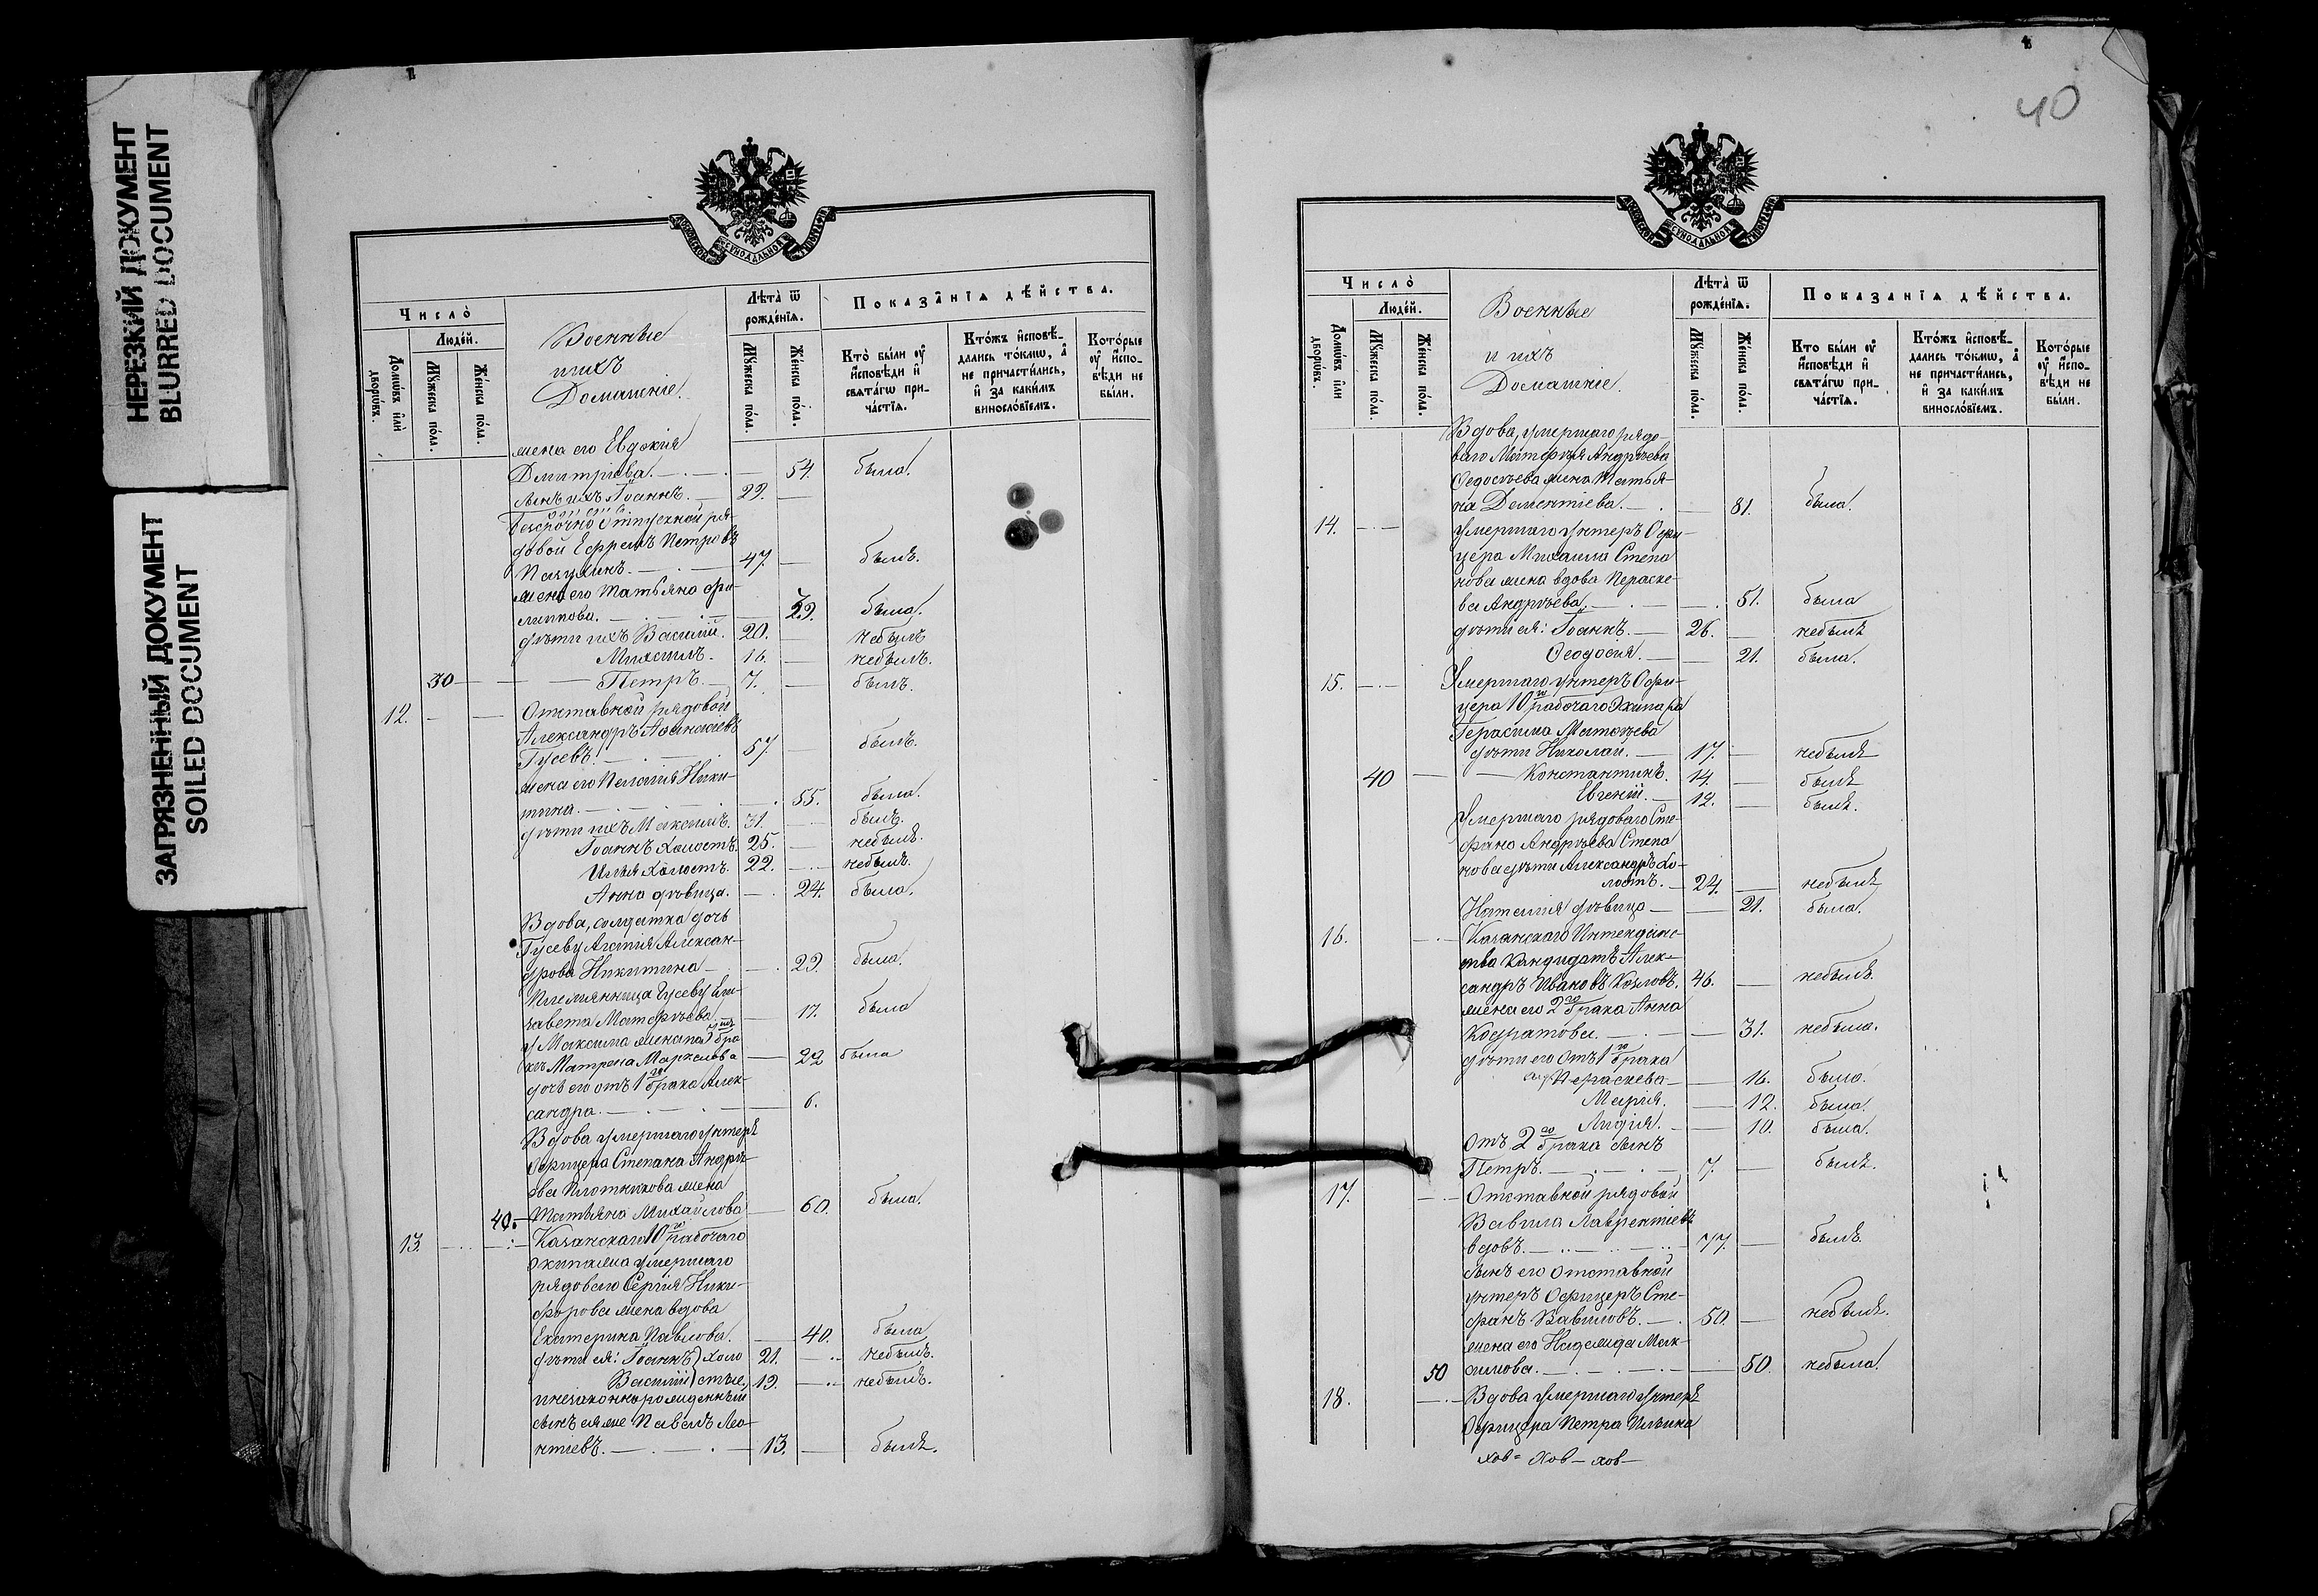 НЕРЕЗКИЙ ДОКУМЕНТ
BLURRED DOCUMENT
ЗАГРЯЗНЕННЫЙ ДОКУМЕНТ
SOILED DOCUMENT
МОСКОВСКОЙ СѴНОДАЛЬНОЙ ТИПОГРАФІИ
Число̀
Людéй.
Домѡ́въ и҆лѝ дворѡ́въ.
Мꙋ́жеска по́ла.
Же́нска по́ла.
Военные
и ихъ
Домашніе.
Лѣта̀ ѿ рожде́нїѧ.
Мꙋ́жеска по́ла.
Же́нска по́ла.
Показа̑нїѧ дѣ́йства.
Кто̀ бы́ли ᲂу҆ и҆сповѣ́ди и҆ свѧта́гѡ прича́стїѧ.
Кто́жъ и҆сповѣ́дались то́кмѡ, а҆ не причасти́лись, и҆ за каки́мъ винослóвїемъ.
Кото́рые ᲂу҆ и҆сповѣ́ди не бы́ли.
жена его Евдокія
Дмитріева. 54. была.
сынъ ихъ Іоаннъ. 22.
Безсрочно Отпускной ря-
довой Ефремъ Петровъ
47. былъ.
жена его Татьяна Фи-
липова. 39. была.
дѣти ихъ Василій. 20. небылъ
Михаилъ. 16. небылъ.
30 Петръ. 7. былъ.
12. Отставной рядовой
Александръ Аѳанасіевъ
Гусевъ. 57 былъ.
жена его Пелагія Ники-
тина. 55. была.
дѣти ихъ Максимъ. 31. былъ.
Іоаннъ холостъ. 25. небылъ.
Илья холостъ. 22. небылъ.
Анна дѣвица. 24. была.
Вдова, солдатка дочь
Гусеву Агапія Алексан-
дрова Никитина 29. была.
Племянница Гусеву Ели-
завета Матѳѣева. 17. была
у Максима жена по 2мъ бра
кѣ Матрена Маркелова 22 была
дочь его отъ 1го брака Алек-
сандра. 6.
Вдова умершаго унтеръ
Офицера Степана Андрѣ-
ева Плотникова жена
40. Татьяна Михайлова 60. была.
13. Казанскаго 10го рабочаго
экипажа умершаго
рядоваго Сергія Ники-
форова жена вдова
Екатерина Павлова. 40. была
дѣти ея: Іоаннъ) холо 21. небылъ.
Василій) стые, 19. небылъ.
и незаконнорожденный
сынъ ея же Павелъ Лео-
нтіевъ. 13. былъ.
40
МОСКОВСКОЙ СѴНОДАЛЬНОЙ ТИПОГРАФІИ
Число̀
Людéй.
Домѡ́въ и҆лѝ дворѡ́въ.
Мꙋ́жеска по́ла.
Же́нска по́ла.
Военные
и ихъ
Домашніе.
Лѣта̀ ѿ рожде́нїѧ.
Мꙋ́жеска по́ла.
Же́нска по́ла.
Показа̑нїѧ дѣ́йства.
Кто бы́ли ᲂу҆ и҆сповѣ́ди и҆ свѧта́гѡ прича́стїѧ.
Кто́жъ и҆сповѣ́дались то́кмѡ, а҆ не причасти́лись, и҆ за каки́мъ винослóвїемъ.
Кото́рые ᲂу҆ и҆сповѣ́ди не бы́ли.
Вдова, умершаго рядо-
ваго Матѳѣя Андрѣева
Ѳедосѣева жена Татья-
на Дементіева. 81. была.
14. Умершаго унтеръ Офи-
цера Михаила Степа
нова жена вдова Параске-
ва Андрѣева. 51. была
дѣти ея: Іоаннъ. 26. небылъ
Ѳеодосія. 21. была.
15. Умершаго унтеръ Офи-
цера 10го рабочаго Экипажа
Герасима Матѳѣева
дѣти Николай. 17. небылъ
40 Константинъ. 14. былъ
Евгеній. 12. былъ.
Умершаго рядоваго Сте-
фана Андрѣева Степа
нова дѣти Александръ хо-
лостъ. 24. небылъ
Наталія дѣвица 21. была.
16. Казанскаго Интендант-
ства Кандидатъ Алек-
сандръ Ивановъ Козловъ. 46. небылъ.
жена его 2го брака Анна
Кодратова. 31. небыла.
дѣти его отъ 1го брака
Параскева 16. была.
Марія. 12. была.
Лидія. 10. была.
Отъ 2го брака сынъ
Петръ. 7. былъ.
17. Отставной рядовой
Вавила Лаврентіевъ
вдовъ. 77. былъ.
сынъ его Отставной
унтеръ Офицеръ Сте-
фанъ Вавиловъ. 50. небылъ.
жена его Надежда Мак-
50 симова. 50. небыла.
18. Вдова умершаго унтеръ
Офицера Петра Ильина
хов= хов- хов-